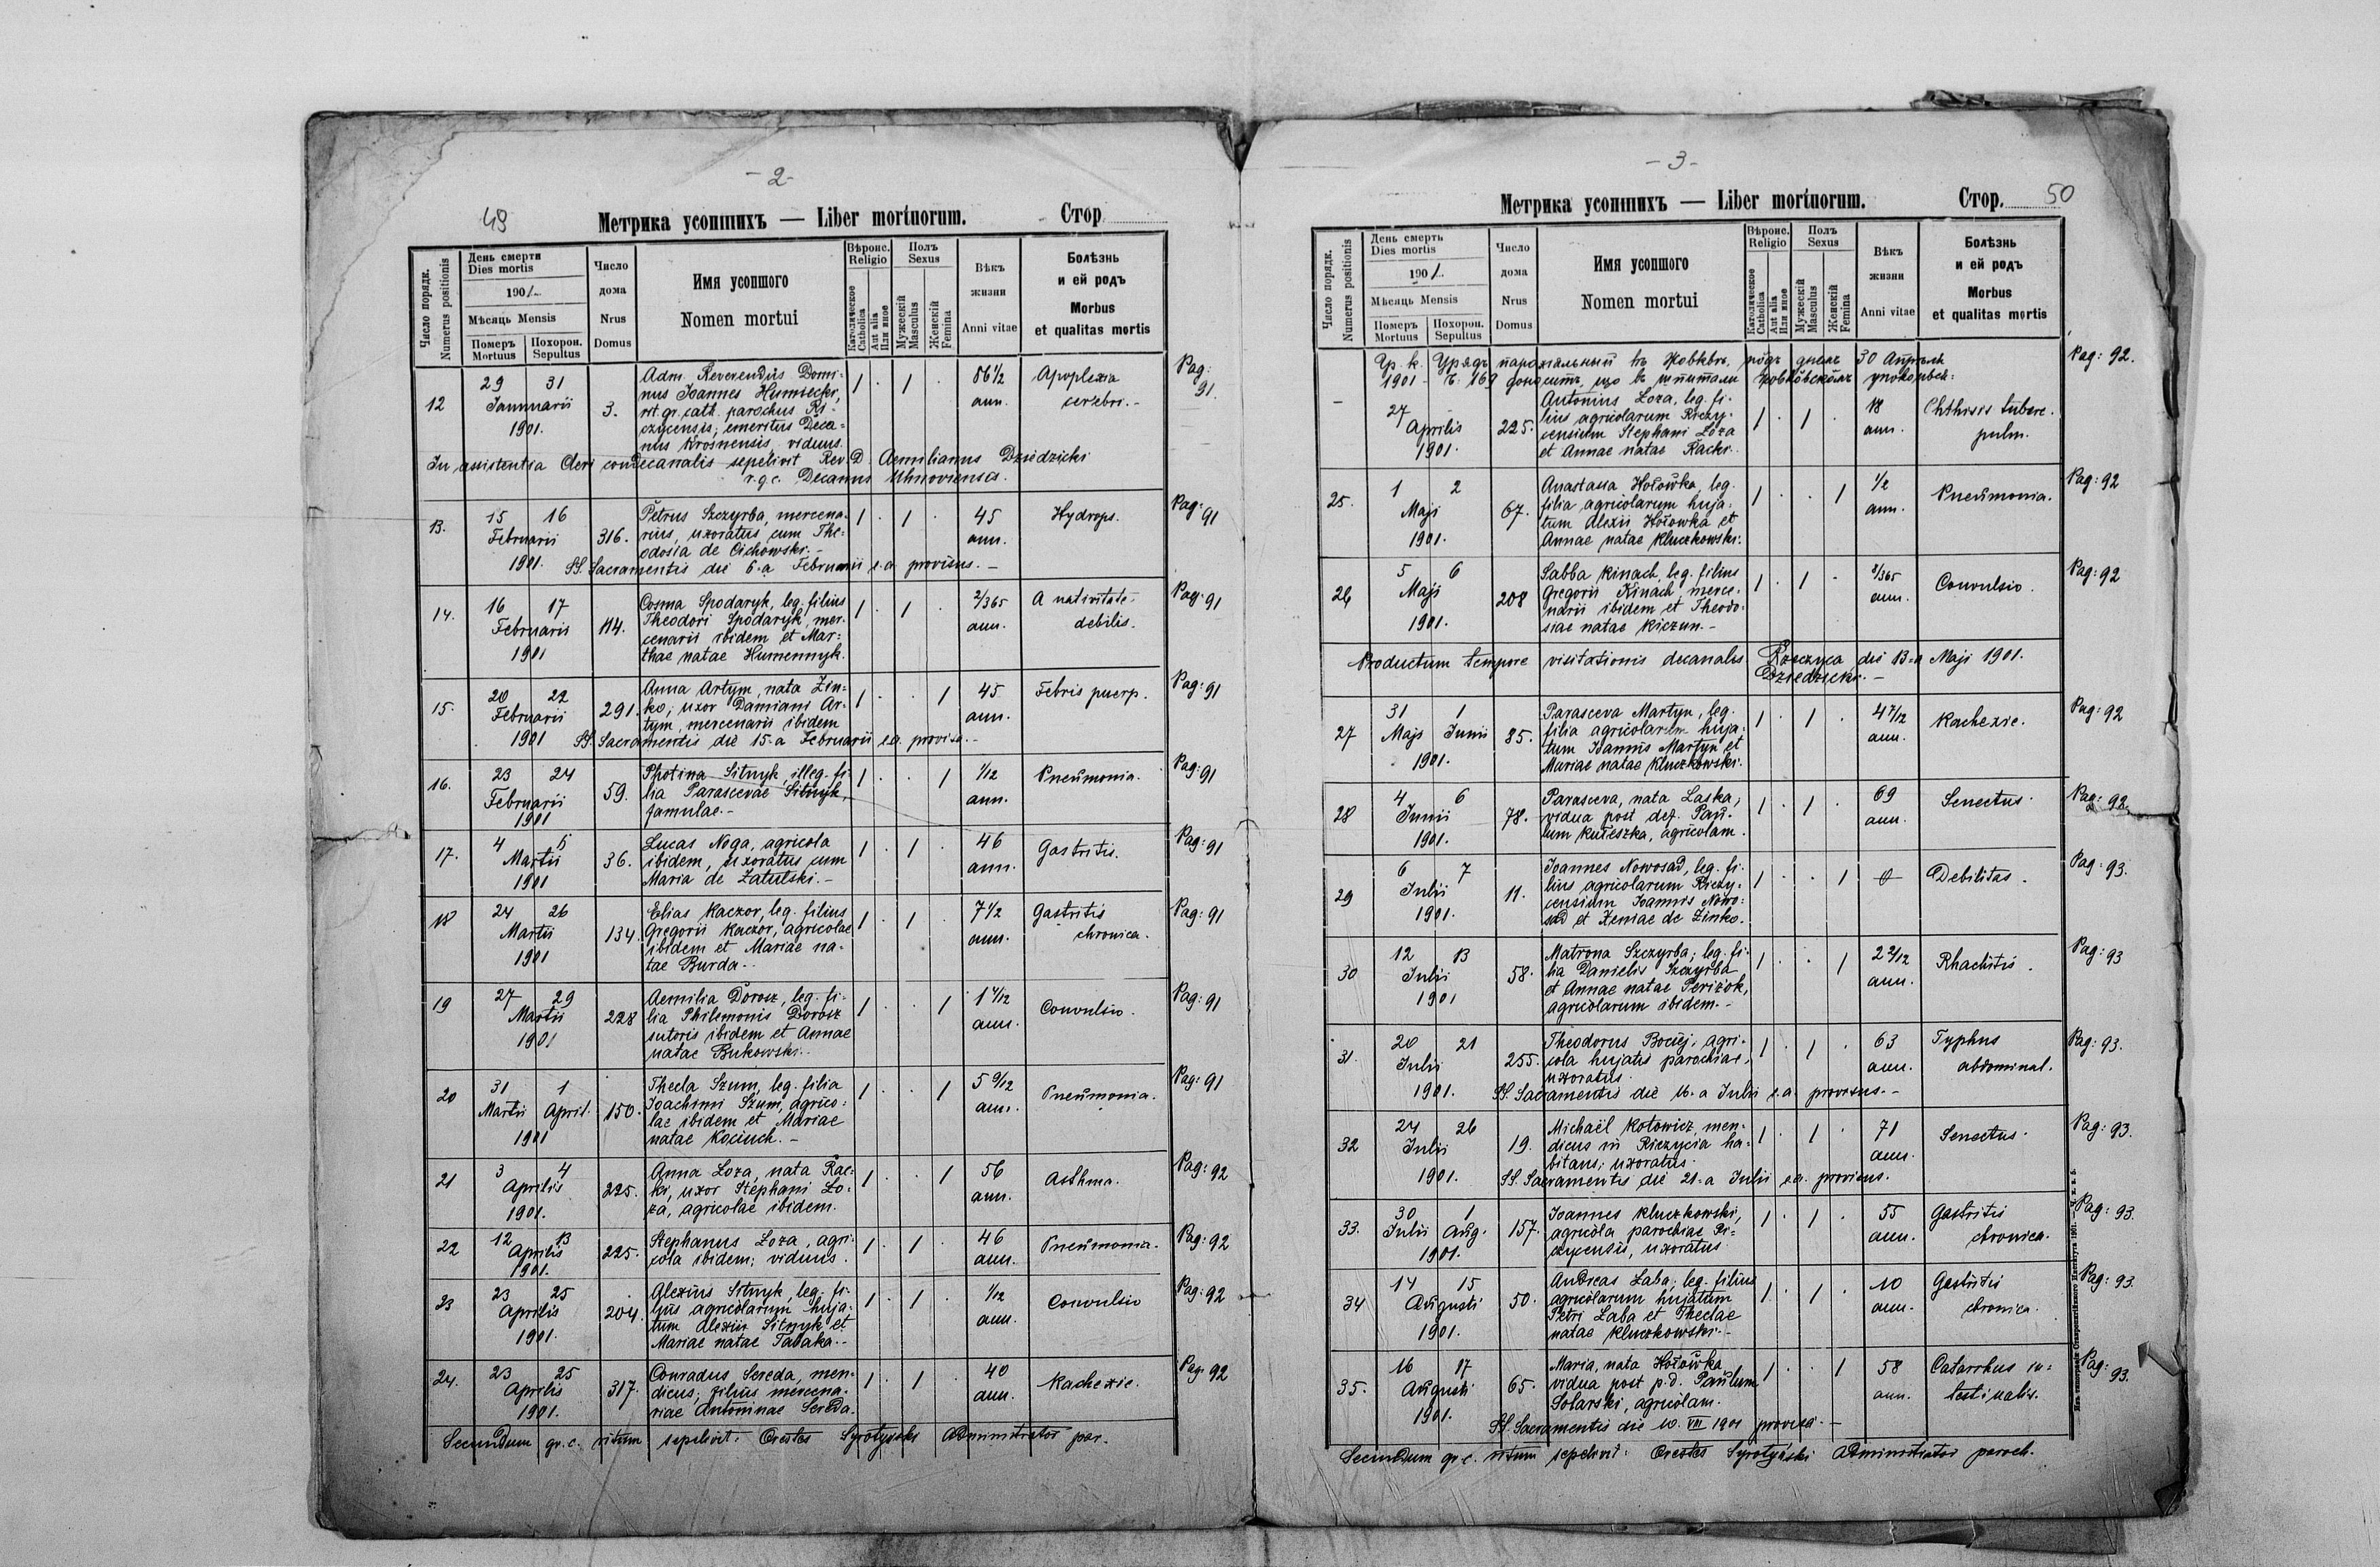 - 2 -
49
Метрика усопшихъ — Liber mortuorum.
Стор.
Число порядк. Numerus positionis
День смерти Dies mortis
1901.
Мѣсяць Mensis
Померъ Mortuus
Похорон. Sepultus
Число дома Nrus Domus
Имя усопшого
Nomen mortui
Вѣроис. Religio
Католическое Catholica
Aut alia Или иное
Полъ Sexus
Мужескій Masculus
Женскій Femina
Вѣкъ жизни
Anni vitae
Болѣзнь и ей родъ
Morbus et qualitas mortis
12 29 31 Januarii 1901. 3.
Adm. Reverendus Domi-
nus Joannes Humiecki,
rit. gr. cath. parochus Ri-
czycensis, emeritus Deca-
nus Krosnensis, viduus.
1 . 1 . 86 1/2 ann. Apoplexia cerebri. - Pag: 91.
In assistentia Cleri condecanalis sepelivit Rev. D. Aemilianus Dziedzicki
r.g.c. Decanus Uhnoviensis.
13. 15 16 Februarii 1901. 316.
Petrus Szczyrba, mercena-
rius, uxoratus cum The-
odosia de Cichowski. -
1 . 1 . 45 ann. Hydrops. Pag: 91
SS. Sacramentis die 6-a Februarii e.a. provisus. -
14. 16 17 Februarii 1901 114.
Cosma Spodaryk, leg. filius
Theodori Spodaryk, mer-
cenarii ibidem et Mar-
thae natae Humennyk.
1 . 1 . 2/365 ann. A nativitate debilis. Pag: 91
15. 20 22 Februarii 1901 291.
Anna Artym, nata Zin-
ko; uxor Damiani Ar-
tym, mercenarii ibidem
1 . . 1 45 ann. Febris puerp. Pag: 91
SS. Sacramentis die 15-a Februarii e.a. provisa. -
16. 23 24 Februarii 1901 59.
Photina Sitnyk, illeg. fi-
lia Parascevae Sitnyk,
famulae. -
1 . . 1 1/12 ann. Pneumonia. Pag: 91
17. 4 5 Martii 1901 36.
Lucas Noga, agricola
ibidem, uxoratus cum
Maria de Zatulski. -
1 . 1 . 46 ann. Gastritis. Pag: 91
18 24 26 Martii 1901 134.
Elias Kaczor, leg. filius
Gregorii Kaczor, agricolae
ibidem et Mariae na-
tae Burda. -
1 . 1 . 7 1/2 ann. Gastritis chronica. Pag: 91
19 27 29 Martii 1901 228
Aemilia Dorosz, leg. fi-
lia Philemonis Dorosz
sutoris ibidem et Annae
natae Bukowski. -
1 . . 1 ann. Convulsio. Pag: 91
20 31 1 Martii April. 1901 150.
Thecla Szum, leg. filia
Joachimi Szum, agrico-
lae ibidem et Mariae
natae Kociuch. -
1 . . 1 5 9/12 ann. Pneumonia. Pag: 91
21 3 4 Aprilis 1901. 225.
Anna Łoza, nata Rac-
ki, uxor Stephani Ło-
za, agricolae ibidem.
1 . . 1 56 ann. Asthma. Pag: 92
22 12 13 Aprilis 1901. 225.
Stephanus Łoza, agri-
cola ibidem; viduus.
1 . 1 . 46 ann. Pneumonia. Pag: 92
23 23 25 Aprilis 1901. 204.
Alexius Sitnyk, leg. fi-
lius agricolarum huja-
tum Alexii Sitnyk et
Mariae natae Tabaka. -
1 . 1 . 1/12 ann. Convulsio Pag: 92
24. 23 25 Aprilis 1901. 317.
Conradus Sereda, men-
dicus; filius mercena-
riae Antoninae Sereda.
1 . 1 . 40 ann. Kachexie. Pag: 92
Secundum gr.c. ritum sepelivit: Orestes Syrotyński Administrator par.
- 3 -
Метрика усопшихъ — Liber mortuorum.
Стор. 50
Число порядк. Numerus positionis
День смерть Dies mortis
1901.
Мѣсяць Mensis
Померъ Mortuus
Похорон. Sepultus
Число дома Nrus Domus
Имя усопшого
Nomen mortui
Вѣроис. Religio
Католическое Catholica
Aut alia Или иное
Полъ Sexus
Мужескій Masculus
Женскій Femina
Вѣкъ жизни
Anni vitae
Болѣзнь и ей родъ
Morbus et qualitas mortis
Гр. к. Урядъ парохіяльный въ Жовквѣ, подъ днемъ 30 Апрѣля
1901 Ч. 169 доноситъ, що въ шпитали жовкôвскôмъ
Pag: 92.
- 27 Aprilis 1901. 225.
Antonius Łoza, leg. fi-
lius agricolarum Riczy-
censium Stephani Łoza
et Annae natae Racki.
1 . 1 . 18 ann. Phthisis tuberc. pulm.
25. 1 2 Maji 1901. 67.
Anastasia Hołowka, leg.
filia agricolarum huja-
tum Alexii Hołowka et
Annae natae Kluczkowski.
1 . . 1 1/2 ann. Pneumonia. Pag: 92
26 5 6 Maji 1901. 208
Sabba Kinach, leg. filius
Gregorii Kinach, merce-
narii ibidem et Theodo-
siae natae Kiczun. -
1 . 1 . 8/365 ann. Convulsio. Pag: 92
Productum tempore visitationis decanalis Rzeczyca, die 13-a Maji 1901.
Dziedzicki. -
27 31 1 Maji Junii 1901. 85.
Parasceva Martyn, leg.
filia agricolarum huja-
tum Joannis Martyn et
Mariae natae Kluczkowski.
1 . 1 . 4 7/12 ann. Kachexie. Pag: 92
28 4 6 Junii 1901. 78.
Parasceva, nata Laska,
vidua post def. Pau-
lum Kuleszka, agricolam.
1 . 1 . 69 ann. Senectus. Pag: 92
29 6 7 Julii 1901. 11.
Joannes Nowosad, leg. fi-
lius agricolarum Riczy-
censium Joannis Nowo-
sad et Xeniae de Zinko.
1 . . 1 0 Debilitas. Pag: 93.
30 12 13 Julii 1901 58.
Matrona Szczyrba; leg. fi-
lia Danielis Szczyrba
et Annae natae Perizok,
agricolarum ibidem. -
1 . . 1 2 2/12 ann. Rhachitis. Pag: 93
31. 20 21 Julii 1901. 255.
Theodorus Bociej, agri-
cola hujatis parochiae,
uxoratus.
1 . 1 . 63 ann. Typhus abdominal. Pag: 93.
SS. Sacramentis die 16-a Julii e.a. provisus. -
32 24 26 Julii 1901. 19.
Michaël Kotowicz, men-
dicus in Riczycia ha-
bitans; uxoratus.
1 . 1 . 71 ann. Senectus. Pag: 93.
SS. Sacramentis die 21-a Julii e.a. provisus.
33. 30 1 Julii Aug. 1901. 157.
Joannes Kluczkowski,
agricola parochiae Ri-
czycensis, uxoratus
1 . 1 . 55 ann. Gastritis chronica. Pag: 93.
34 14 15 Augusti 1901. 50.
Andreas Łaba; leg. filius
agricolarum hujatum
Petri Łaba et Theclae
natae Kluczkowski. -
1 . 1 . 10 ann. Gastritis chronica. Pag: 93
35. 16 17 Augusti 1901. 65.
Maria, nata Hołowka,
vidua post p.d. Paulum
Solarski, agricolam.
1 . . 1 58 ann. Catarrhus in-
testinalis. Pag: 93.
SS. Sacramentis die 10. VIII 1901 provisa. -
Secundum gr.c. ritum sepelivit: Orestes Syrotyński Administrator paroch.
Изъ типографіи Ставропигійского Института 1901.